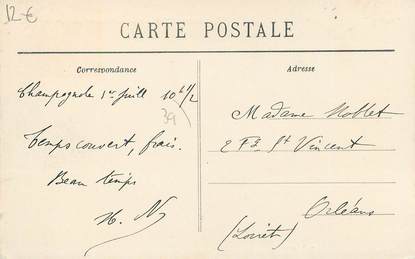 12€
CARTE POSTALE
Correspondance
Adresse
Champagnole 1er Juill 10h 1/2
39
Temps couvert, frais.
Beau temps
H. N.
Madame Noblet
2 Fg St Vincent
Orléans
(Loiret)